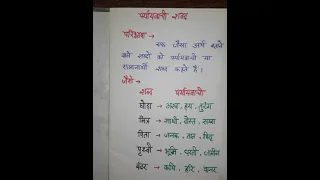 पर्यायवाची शब्द
परिभाषा →
एक जैसा अर्थ रखने
वाले शब्दों को पर्यायवाची या
समानार्थी शब्द कहते हैं।
जैसे →
शब्द पर्यायवाची
घोड़ा → अश्व, हय, तुरंग
मित्र → साथी, दोस्त, सखा
पिता → जनक, तात, पितृ
पृथ्वी → भूमि, धरती, जमीन
बंदर → कपि, हरि, वानर